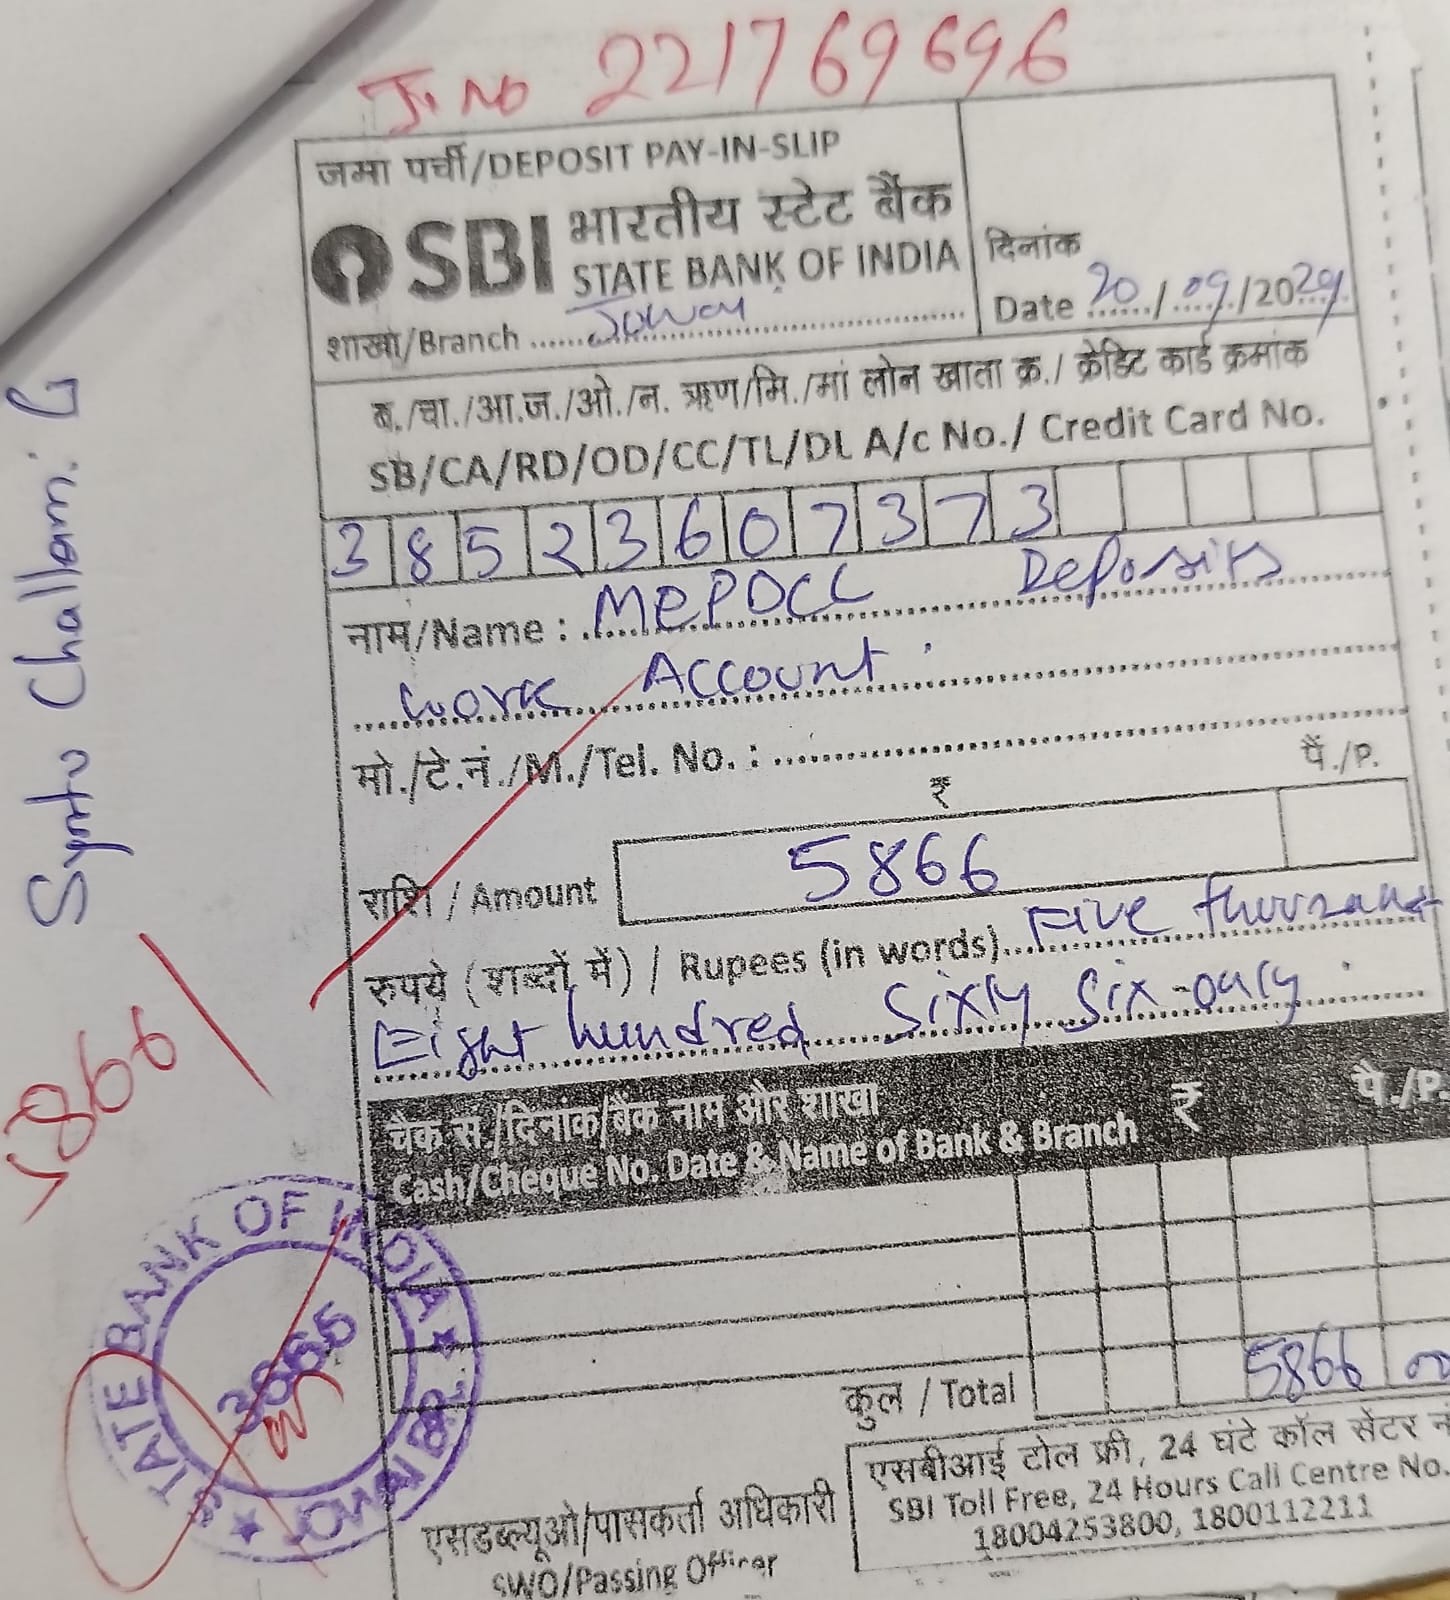 Jr. No 221769696
जमा पर्ची/DEPOSIT PAY-IN-SLIP
SBI भारतीय स्टेट बैंक
STATE BANK OF INDIA
शाखा/Branch ...... Jowai
दिनांक
Date 20/09/2024
ब./चा./आ.ज./ओ./न. ऋण/मि./मां लोन खाता क्र./ क्रेडिट कार्ड क्रमांक
SB/CA/RD/OD/CC/TL/DL A/c No./ Credit Card No.
38523607373
नाम/Name : MePDCL Deposits
work Account.
मो./टे.नं./M./Tel. No. :
₹ पै./P.
राशि / Amount 5866
रुपये (शब्दों में) / Rupees (in words) Five thousand
Eight hundred Sixty Six-only.
चैक सं./दिनांक/बैंक नाम और शाखा ₹ पै./P.
Cash/Cheque No. Date & Name of Bank & Branch
कुल / Total 5866 00
एसडब्ल्यूओ/पासकर्ता अधिकारी
SWO/Passing Officer
एसबीआई टोल फ्री, 24 घंटे कॉल सेंटर न
SBI Toll Free, 24 Hours Call Centre No.
18004253800, 1800112211
5866/
STATE BANK OF INDIA
JOWAI BR.